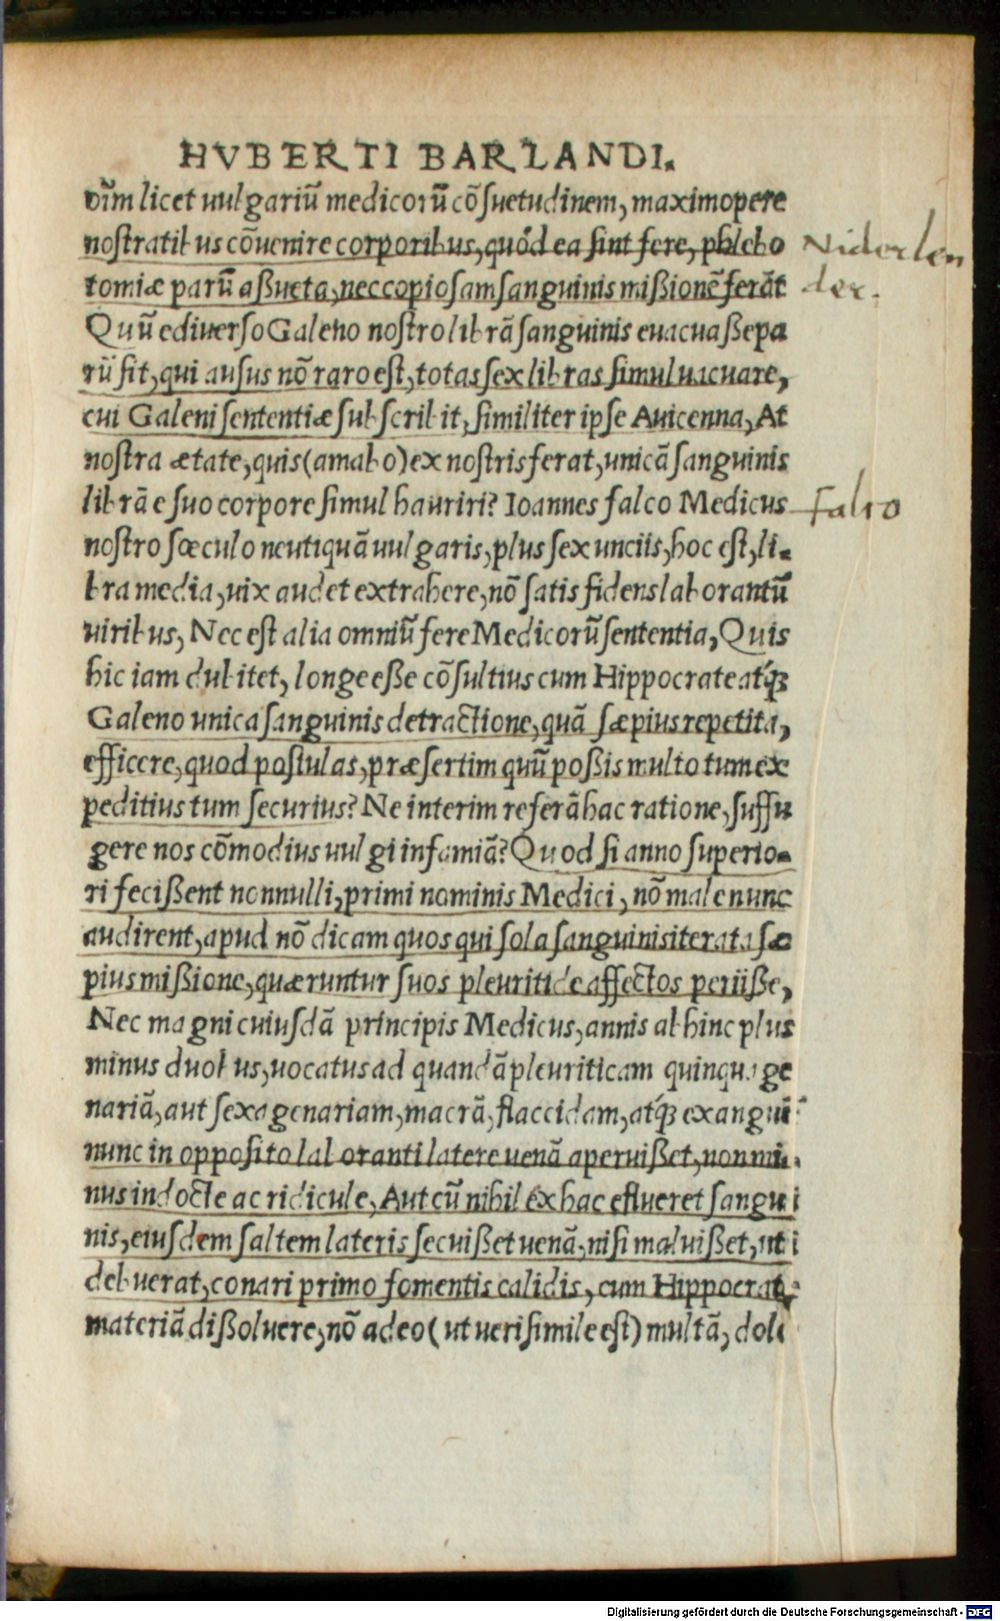 HVBERTI BARLANDI.
dĩm licet uulgariũ medicorũ cõsuetudinem, maximopere
nostratibus cõuenire corporibus, quód ea sint fere, phlebo
tomiæ parũ aßueta, nec copiosam sanguinis mißionẽ ferãt
Niderlen
der.
Quũ ediuerso Galeno nostro librã sanguinis euacuaße pa
rũ sit, qui ausus nõ raro est, totas sex libras simul uacuare,
cui Galeni sententiæ subscribit, similiter ipse Auicenna, At
nostra ætate, quis (amabo) ex nostris ferat, unicã sanguinis
librã e suo corpore simul hauriri? Ioannes falco Medicus
falco
nostro sœculo neutiquã uulgaris, plus sex unciis, hoc est, li-
bra media, uix audet extrahere, nõ satis fidens laborantũ
uiribus, Nec est alia omniũ fere Medicorũ sententia, Quis
hic iam dubitet, longe eße cõsultius cum Hippocrate atq́;
Galeno unica sanguinis detractione, quã sæpius repetita,
efficere, quod postulas, præsertim quũ poßis multo tum ex
peditius tum securius? Ne interim referã hac ratione, suffu
gere nos cõmodius uulgi infamiã? Quod si anno superio-
ri fecißent nonnulli, primi nominis Medici, nõ male nunc
audirent, apud nõ dicam quos qui sola sanguinis iterata sæ
pius mißione, quæruntur suos pleuritide affectos periiße,
Nec magni cuiusdã principis Medicus, annis abhinc plus
minus duobus, uocatus ad quandã pleuriticam quinquage
nariã, aut sexagenariam, macrã, flaccidam, atq́; exanguẽ
nunc in opposito laboranti latere uenã aperuißet, non mi
nus indocte ac ridicule, Aut cũ nihil ex hac eflueret sangui
nis, eiusdem saltem lateris secuißet uenã, nisi maluißet, uti
debuerat, conari primo fomentis calidis, cum Hippocrate
materiã dißoluere, nõ adeo (ut uerisimile est) multã, dole
Digitalisierung gefördert durch die Deutsche Forschungsgemeinschaft - DFG